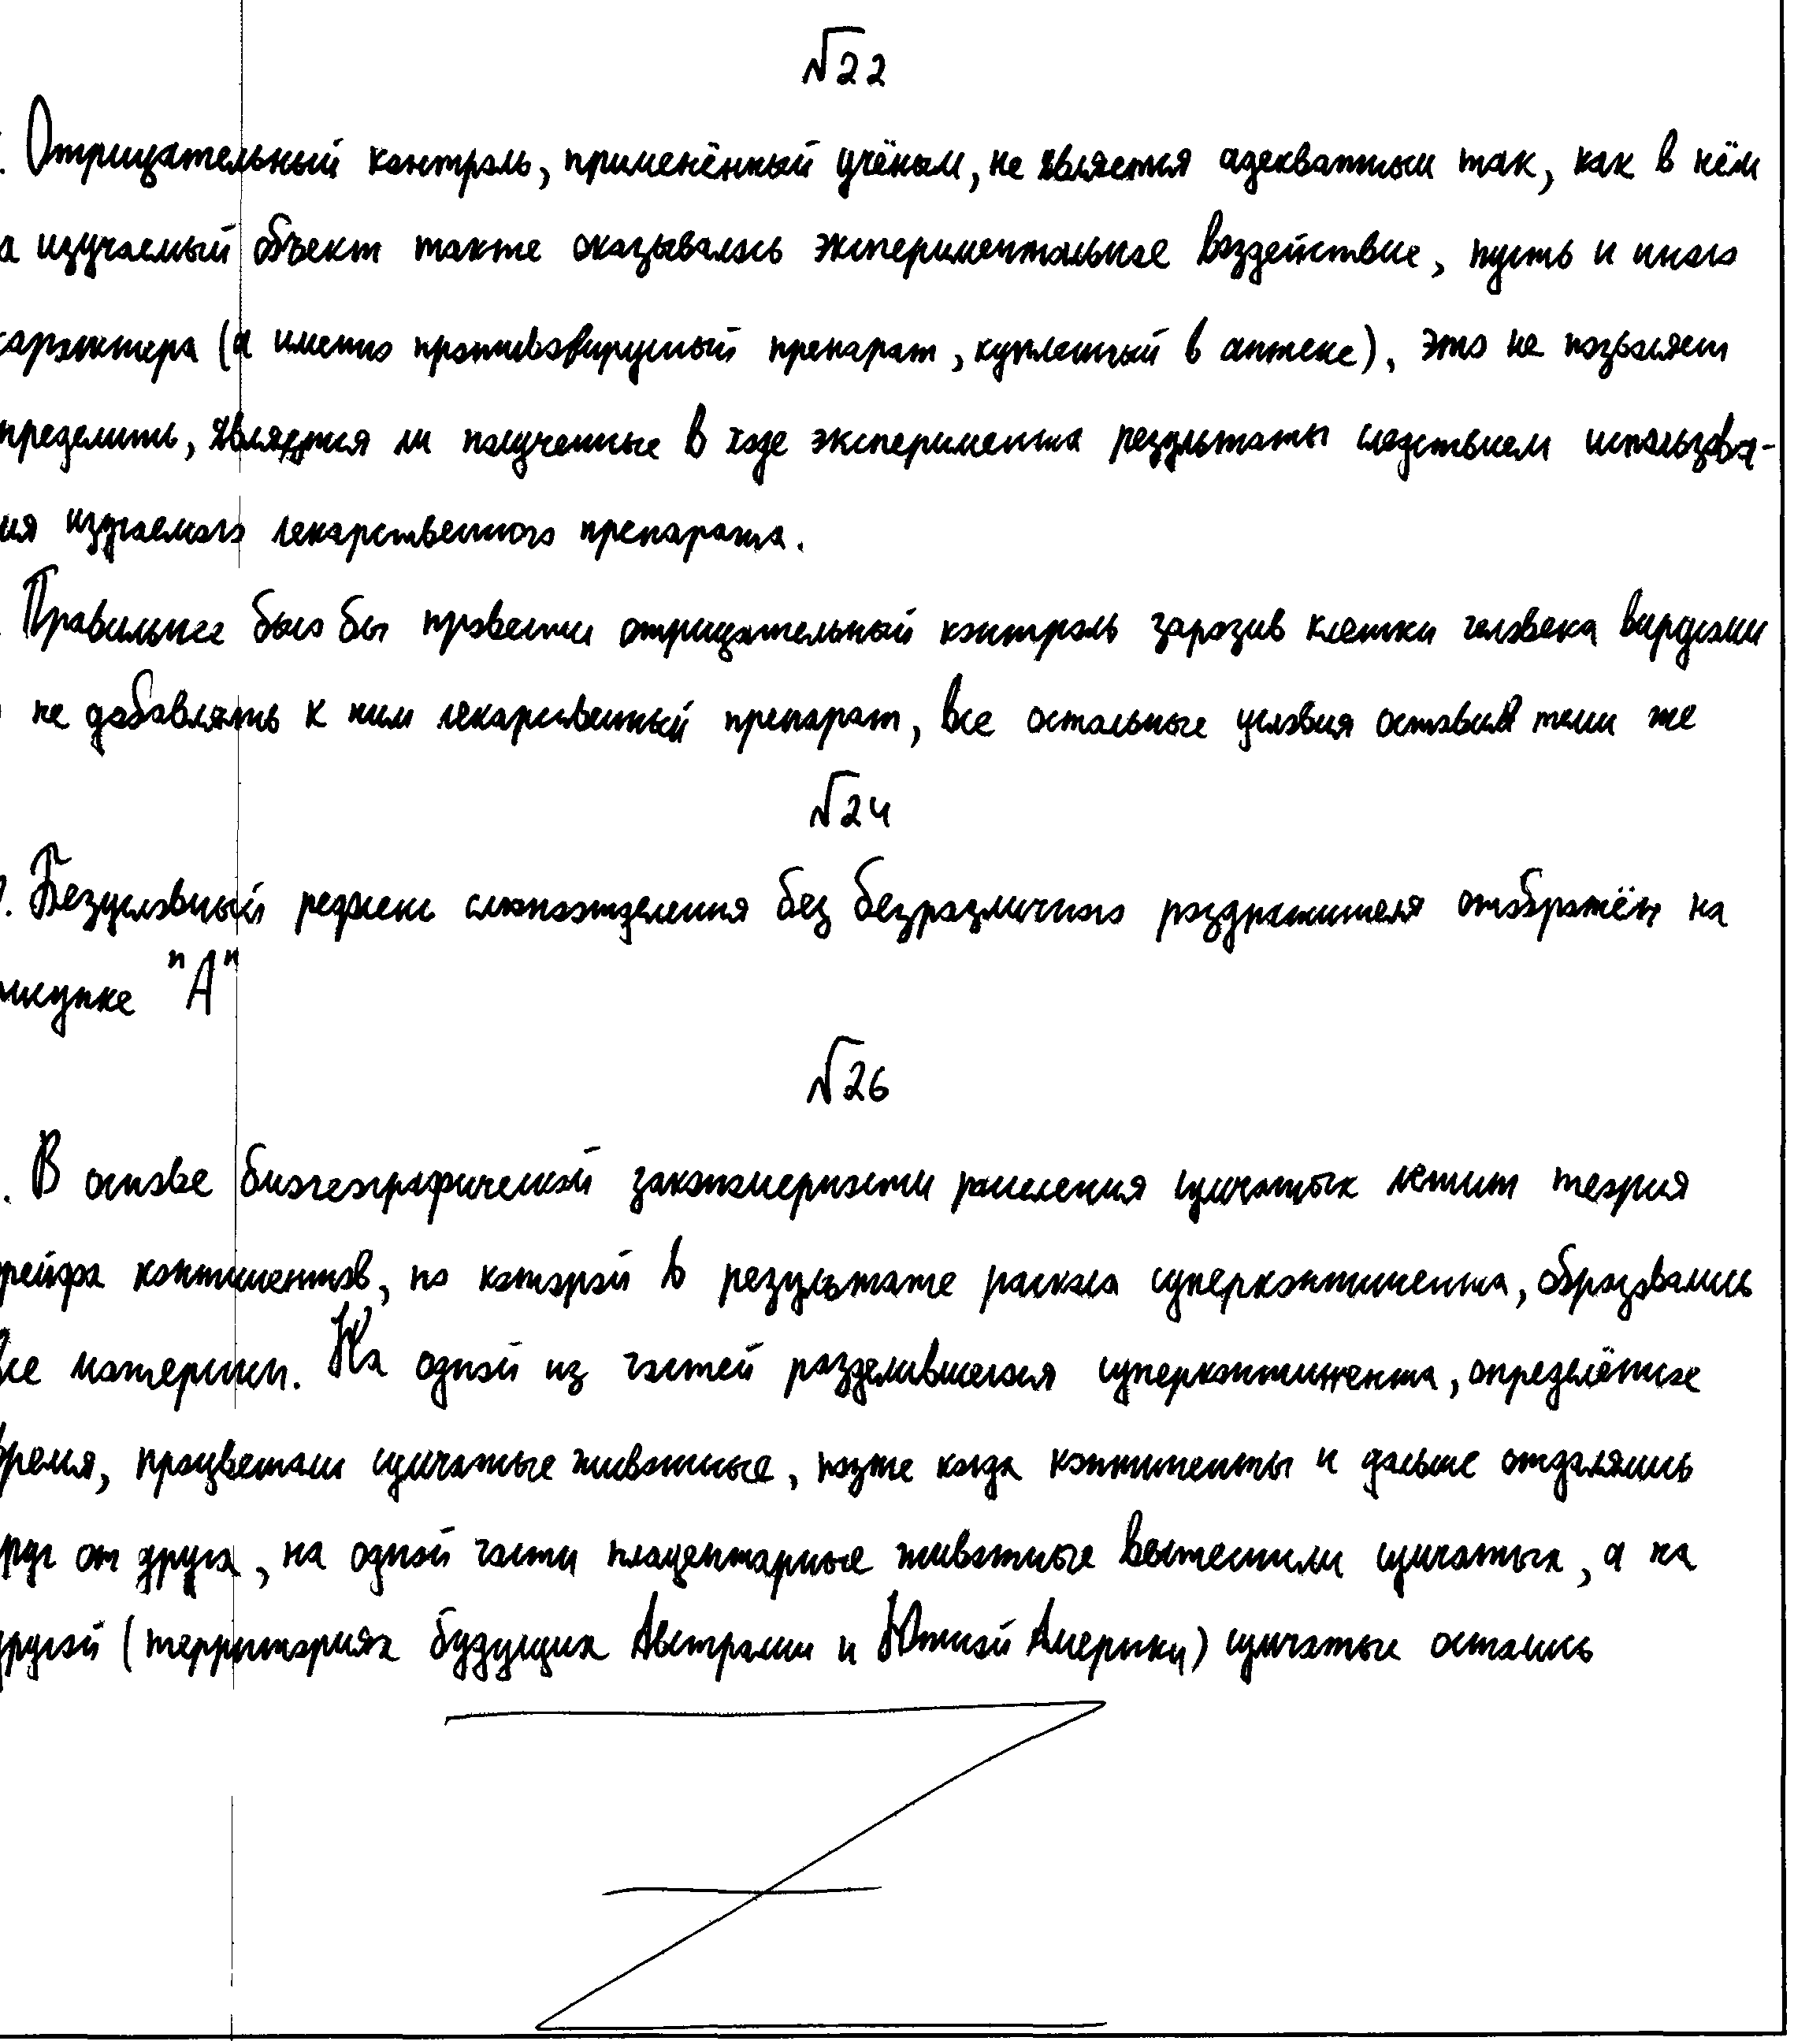 √22
. Отрицательный контроль, применённый учёным, не является адекватным так, как в нём
а изучаемый объект также оказывалось экспериментальное воздействие, пусть и иного
характера (а именно противовирусный препарат, купленный в аптеке), это не позволяет
пределить, является ли полученные в ходе эксперимента результаты следствием использова-
ия изучаемого лекарственного препарата.
. Правильнее было бы провести отрицательный контроль заразив клетки человека вирусами
не добавлять к ним лекарственный препарат, все остальные условия оставив теми же
√24
. Безусловный рефлекс слюноотделения без безразличного раздражителя отображён на
исунке "А"
√26
. В основе биогеографической закономерности расселения сумчатых лежит теория
рейфа континентов, по которой в результате раскола суперконтинента, образовались
все материки. На одной из частей разделившегося суперконтинента, определённое
время, процветали сумчатые животные, позже когда континенты и дальше отдалялись
руг от друга, на одной части плацентарные животные вытеснили сумчатых, а на
другой (территориях будущих Австралии и Южной Америки) сумчатые остались